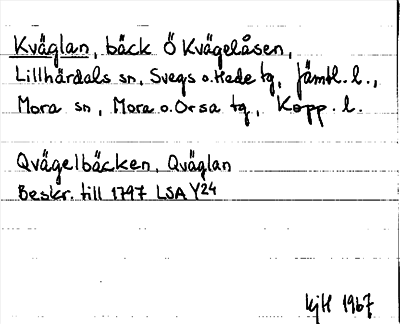 Kväglan, bäck Ö Kvägelåsen,
Lillhärdals sn, Svegs o. Hede tg, Jämtl. l.,
Mora sn, Mora o. Orsa tg, Kopp. l.
Qvägelbäcken, Qväglan
Beskr. till 1797 LSA Y24
kjH 1967